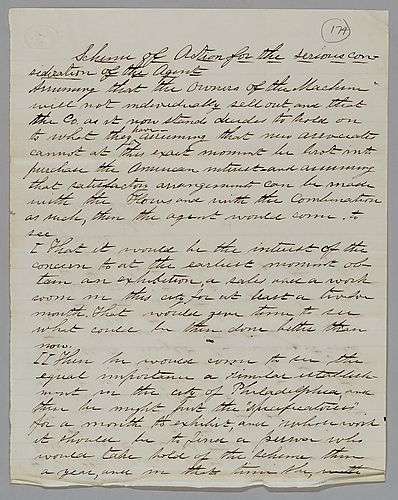 174
Scheme of Action for the serious con
sideration of the Agent
Assuming that the owners of the Machine
will not individually sell out, and that
the Co. as it now stands decides to hold on
to what they have assuming that new associates
cannot at the exact moment be brot in to
purchase the American interest and assuming
that satisfactory arrangement can be made
with the and with the Combination
as such, then the agent would come to
see
I That it would be the interest of the
concern to at the earliest moment ob
tain an exhibition, a sales and a work
room in this city for at least a twelve
month. That would give time to see
what could be then done better than
now.
II Then he would come to see the
equal importance a similar establish
ment in the city of Philadelphia, and
then he might put the
for a month to exhibit, and work
it should be to find a person who
would take hold of the scheme then
a year, and in that time the, with